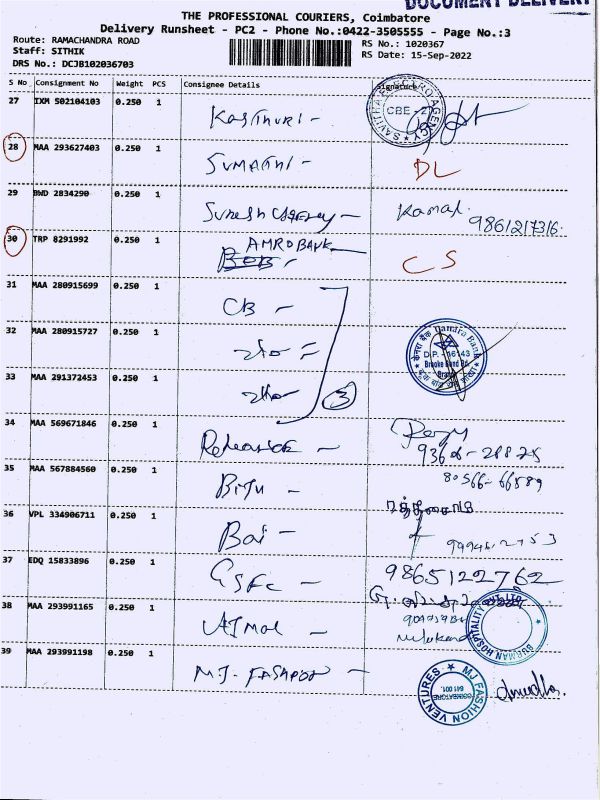 DOCUMENT DELIVERY
THE PROFESSIONAL COURIERS, Coimbatore
Delivery Runsheet - PC2 - Phone No.:0422-3505555 - Page No.:3
Route: RAMACHANDRA ROAD
Staff: SITHIK
DRS No.: DCJB102036703
RS No.: 1020367
RS Date: 15-Sep-2022
S No Consignment No Weight PCS Consignee Details Signature
27 IXM 502104103 0.250 1 Kasthuri -
SAVITHA ELECTRO AGENCY
CBE - 2
28 MAA 293627403 0.250 1 Sumathi - DL
29 BWD 2834290 0.250 1 Suresh - Kamal
9861217316
30 TRP 8291992 0.250 1 AMRO BANK CS
BOB -
31 MAA 280915699 0.250 1 CB -
32 MAA 280915727 0.250 1
केनरा बैंक Canara Bank
D.P. - 16143
Brooke Bond Rd.
Branch
33 MAA 291372453 0.250 1 3
34 MAA 569671846 0.250 1 Reliance -
35 MAA 567884560 0.250 1 Biju - 80566-66889
36 VPL 334906711 0.250 1 Bai -
37 EDQ 15833896 0.250 1 GSFC - 9865122762
38 MAA 293991165 0.250 1 AJmal -
BURMAN HOSPITALITY PVT. LTD
39 MAA 293991198 0.250 1 M.J. FASHION -
MJ FASHION VENTURES
COIMBATORE
641 001.